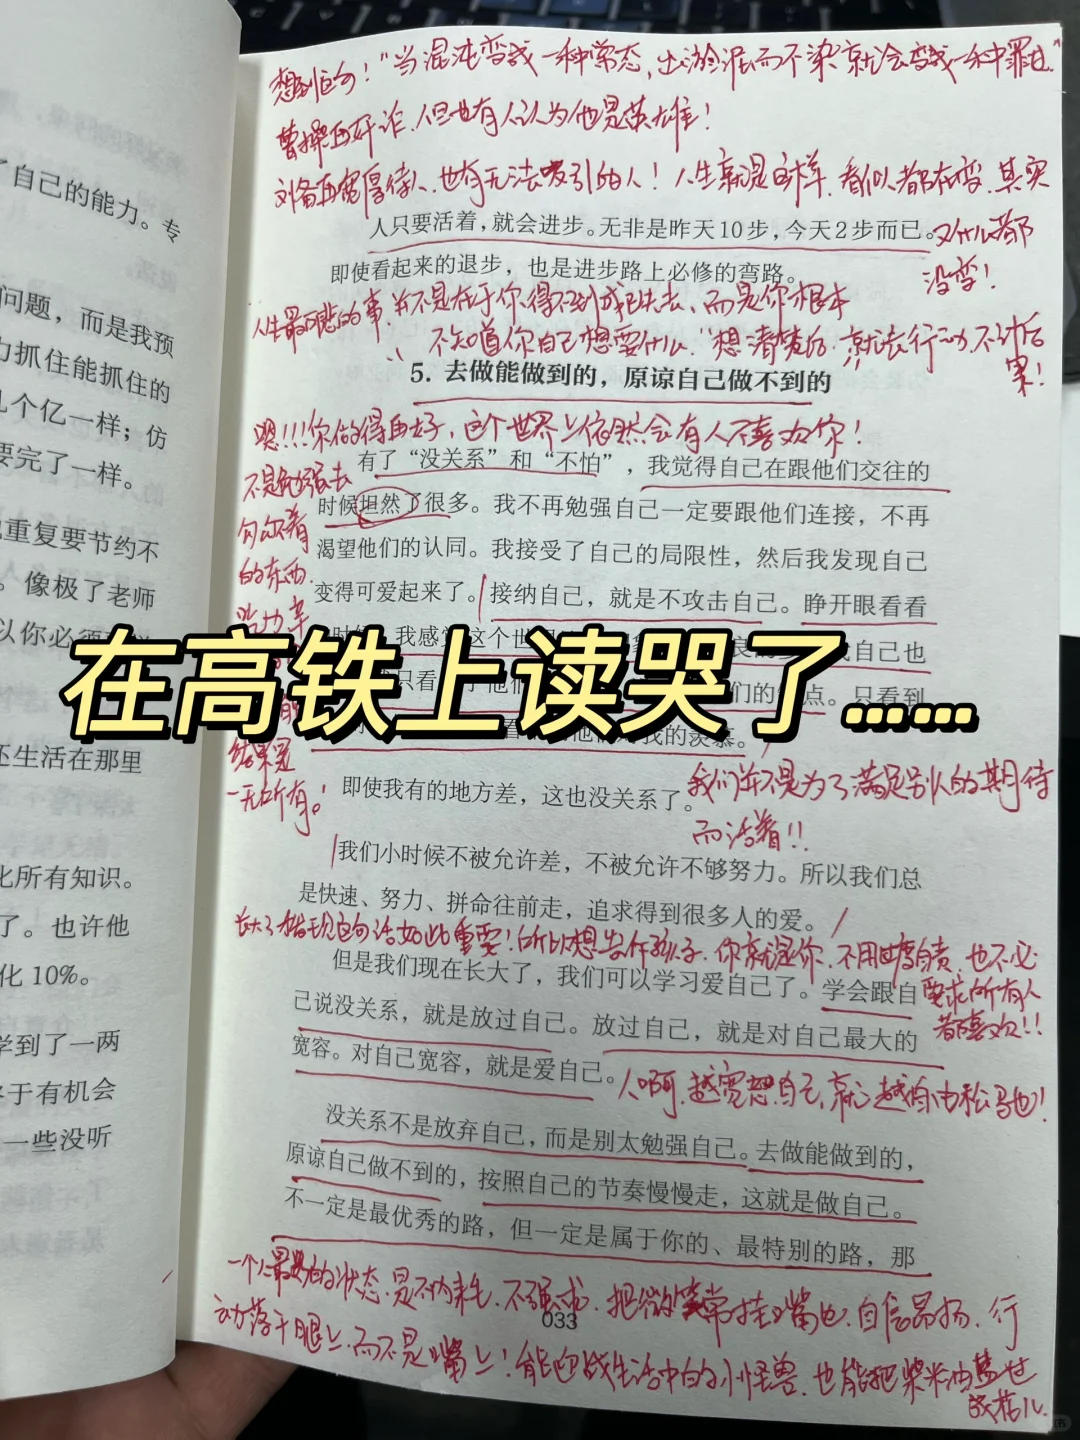 想到一句！“当混沌变成一种常态，出淤泥而不染就会变成一种罪过。”
曹操再奸诈，但也有人认为他是英雄！
刘备再宽厚待人，也有无法吸引的人！人生就是这样，看似人都在变，其实
又什么都
没变！
人只要活着，就会进步。无非是昨天10步，今天2步而已。
即使看起来的退步，也是进步路上必修的弯路。
人生最可悲的事，并不是在于你得不到或失去，而是你根本
不知道你自己想要什么。”想清楚后，就去行动，不计后
果！
5. 去做能做到的，原谅自己做不到的
嗯！！！你做得再好，这个世界上依然会有人不喜欢你！
有了“没关系”和“不怕”，我觉得自己在跟他们交往的
时候坦然了很多。我不再勉强自己一定要跟他们连接，不再
渴望他们的认同。我接受了自己的局限性，然后我发现自己
变得可爱起来了。接纳自己，就是不攻击自己。睁开眼看看
我感觉这个世
我自己也
只看
们的
点。只看到
看
我的羡慕。
不是勉强去
勾
着
的东西
吃力
结果是
一无所有！
在高铁上读哭了……
即使我有的地方差，这也没关系了。
我们并不是为了满足别人的期待
而活着！！
我们小时候不被允许差，不被允许不够努力。所以我们总
是快速、努力、拼命往前走，追求得到很多人的爱。
长大了
发现
话如此重要！所以想告诉孩子，你就是你，不用过度自责，也不必
要求所有人
都喜欢！！
但是我们现在长大了，我们可以学习爱自己了。学会跟自
己说没关系，就是放过自己。放过自己，就是对自己最大的
宽容。对自己宽容，就是爱自己。
人啊，越宽恕自己，就越自由松弛！
没关系不是放弃自己，而是别太勉强自己。去做能做到的，
原谅自己做不到的，按照自己的节奏慢慢走，这就是做自己。
不一定是最优秀的路，但一定是属于你的、最特别的路，那
一个人最好的状态，是不内耗，不强求，把微笑常挂嘴边，自信昂扬，行
动落于腿上，而不是嘴上！能迎战生活中的小怪兽，也能把柴米油盐过
成
033
了自己的能力。专
问题，而是我预
力抓住能抓住的
几个亿一样；仿
要完了一样。
重复要节约不
。像极了老师
以你必须
还生活在那里
化所有知识。
了。也许他
化10%。
学到了一两
终于有机会
一些没听